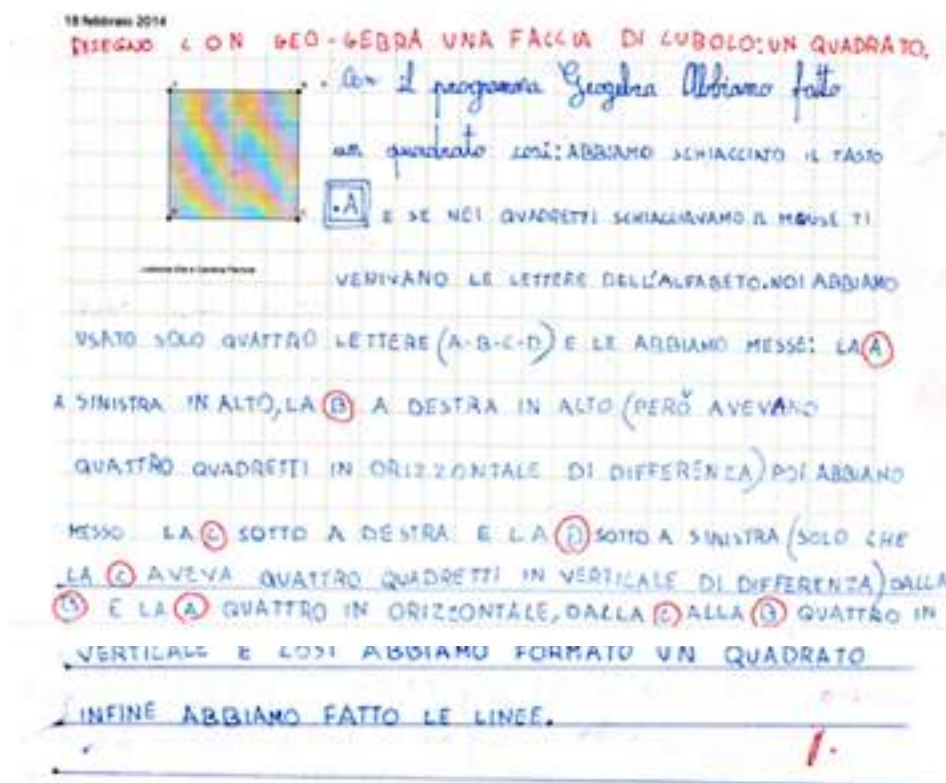 18 febbraio 2014
DISEGNO CON GEO-GEBRA UNA FACCIA DI CUBOLO: UN QUADRATO.
. Con il programma Geogebra Abbiamo fatto
un quadrato così: ABBIAMO SCHIACCIATO IL TASTO
.A E SE NEI QUADRETTI SCHIACCIAVAMO IL MOUSE TI
VENIVANO LE LETTERE DELL'ALFABETO. NOI ABBIAMO
USATO SOLO QUATTRO LETTERE (A-B-C-D) E LE ABBIAMO MESSE: LA A
A SINISTRA IN ALTO, LA B A DESTRA IN ALTO (PERÒ AVEVANO
QUATTRO QUADRETTI IN ORIZZONTALE DI DIFFERENZA) POI ABBIANO
MESSO LA C SOTTO A DESTRA E LA D SOTTO A SINISTRA (SOLO CHE
LA C AVEVA QUATTRO QUADRETTI IN VERTICALE DI DIFFERENZA) DALLA
E LA A QUATTRO IN ORIZZONTALE, DALLA C ALLA B QUATTRO IN
VERTICALE E COSI ABBIAMO FORMATO UN QUADRATO
INFINE ABBIAMO FATTO LE LINEE.